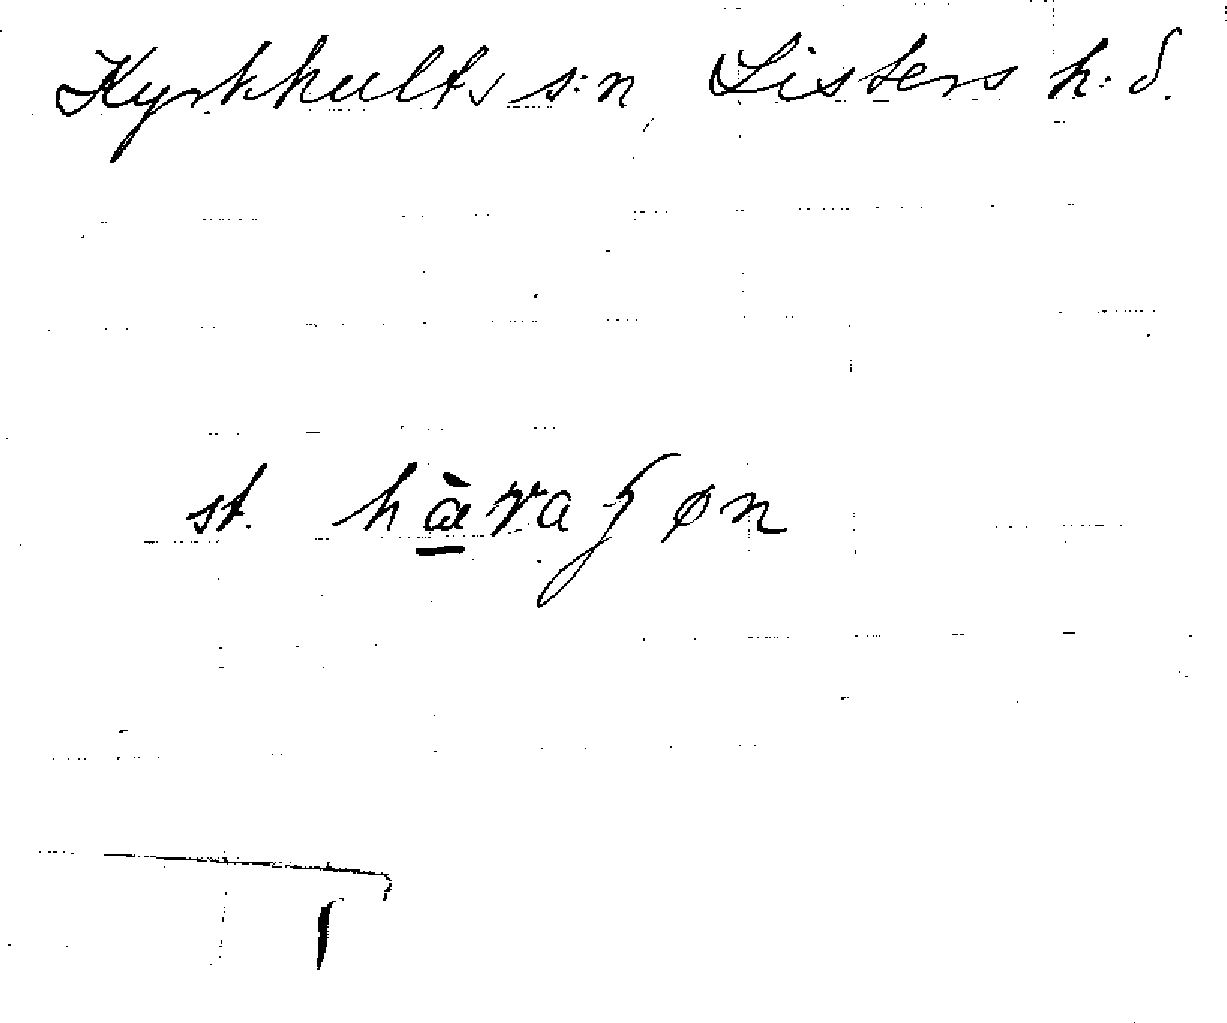 Kyrkhults s:n, Listers h:d.
st. hæ̀vaʃøn